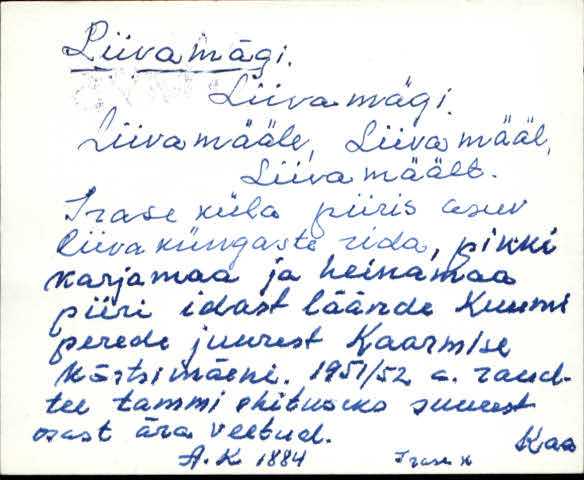 Liivamägi.
Liivamägi.
Liivamääle, Liivamääl,
Liivamäält.
Irase küla piiris asuv
liivaküngaste rida, pikki
karjamaa ja heinamaa
piiri idast läände Kuumi
perede juurest Kaarmise
Kõrtsimäeni. 1951/52 a. raud-
tee tammi ehituseks suurest
osast ära veetud.
Kaa
A. K 1884 Irase k